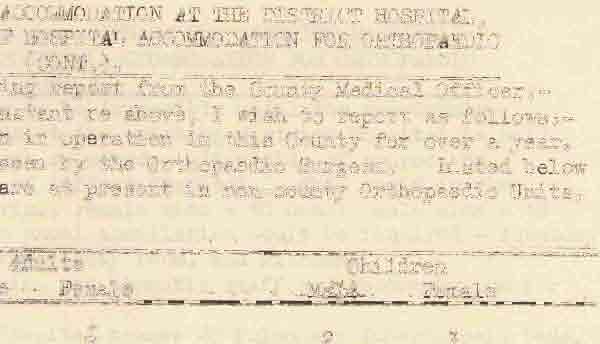 ACCOMMODATION AT THE DISTRICT HOSPITAL,
F HOSPITAL ACCOMMODATION FOR ORTHOPAEDIC
(CONT.).
ing report from the County Medical Officer.-
nstant re above, I wish to report as follows:-
n in operation in this County for over a year,
seen by the Orthopaedic Surgeon. Listed below
are at present in non county Orthopaedic Units.
Adults Children
e Female Male Female